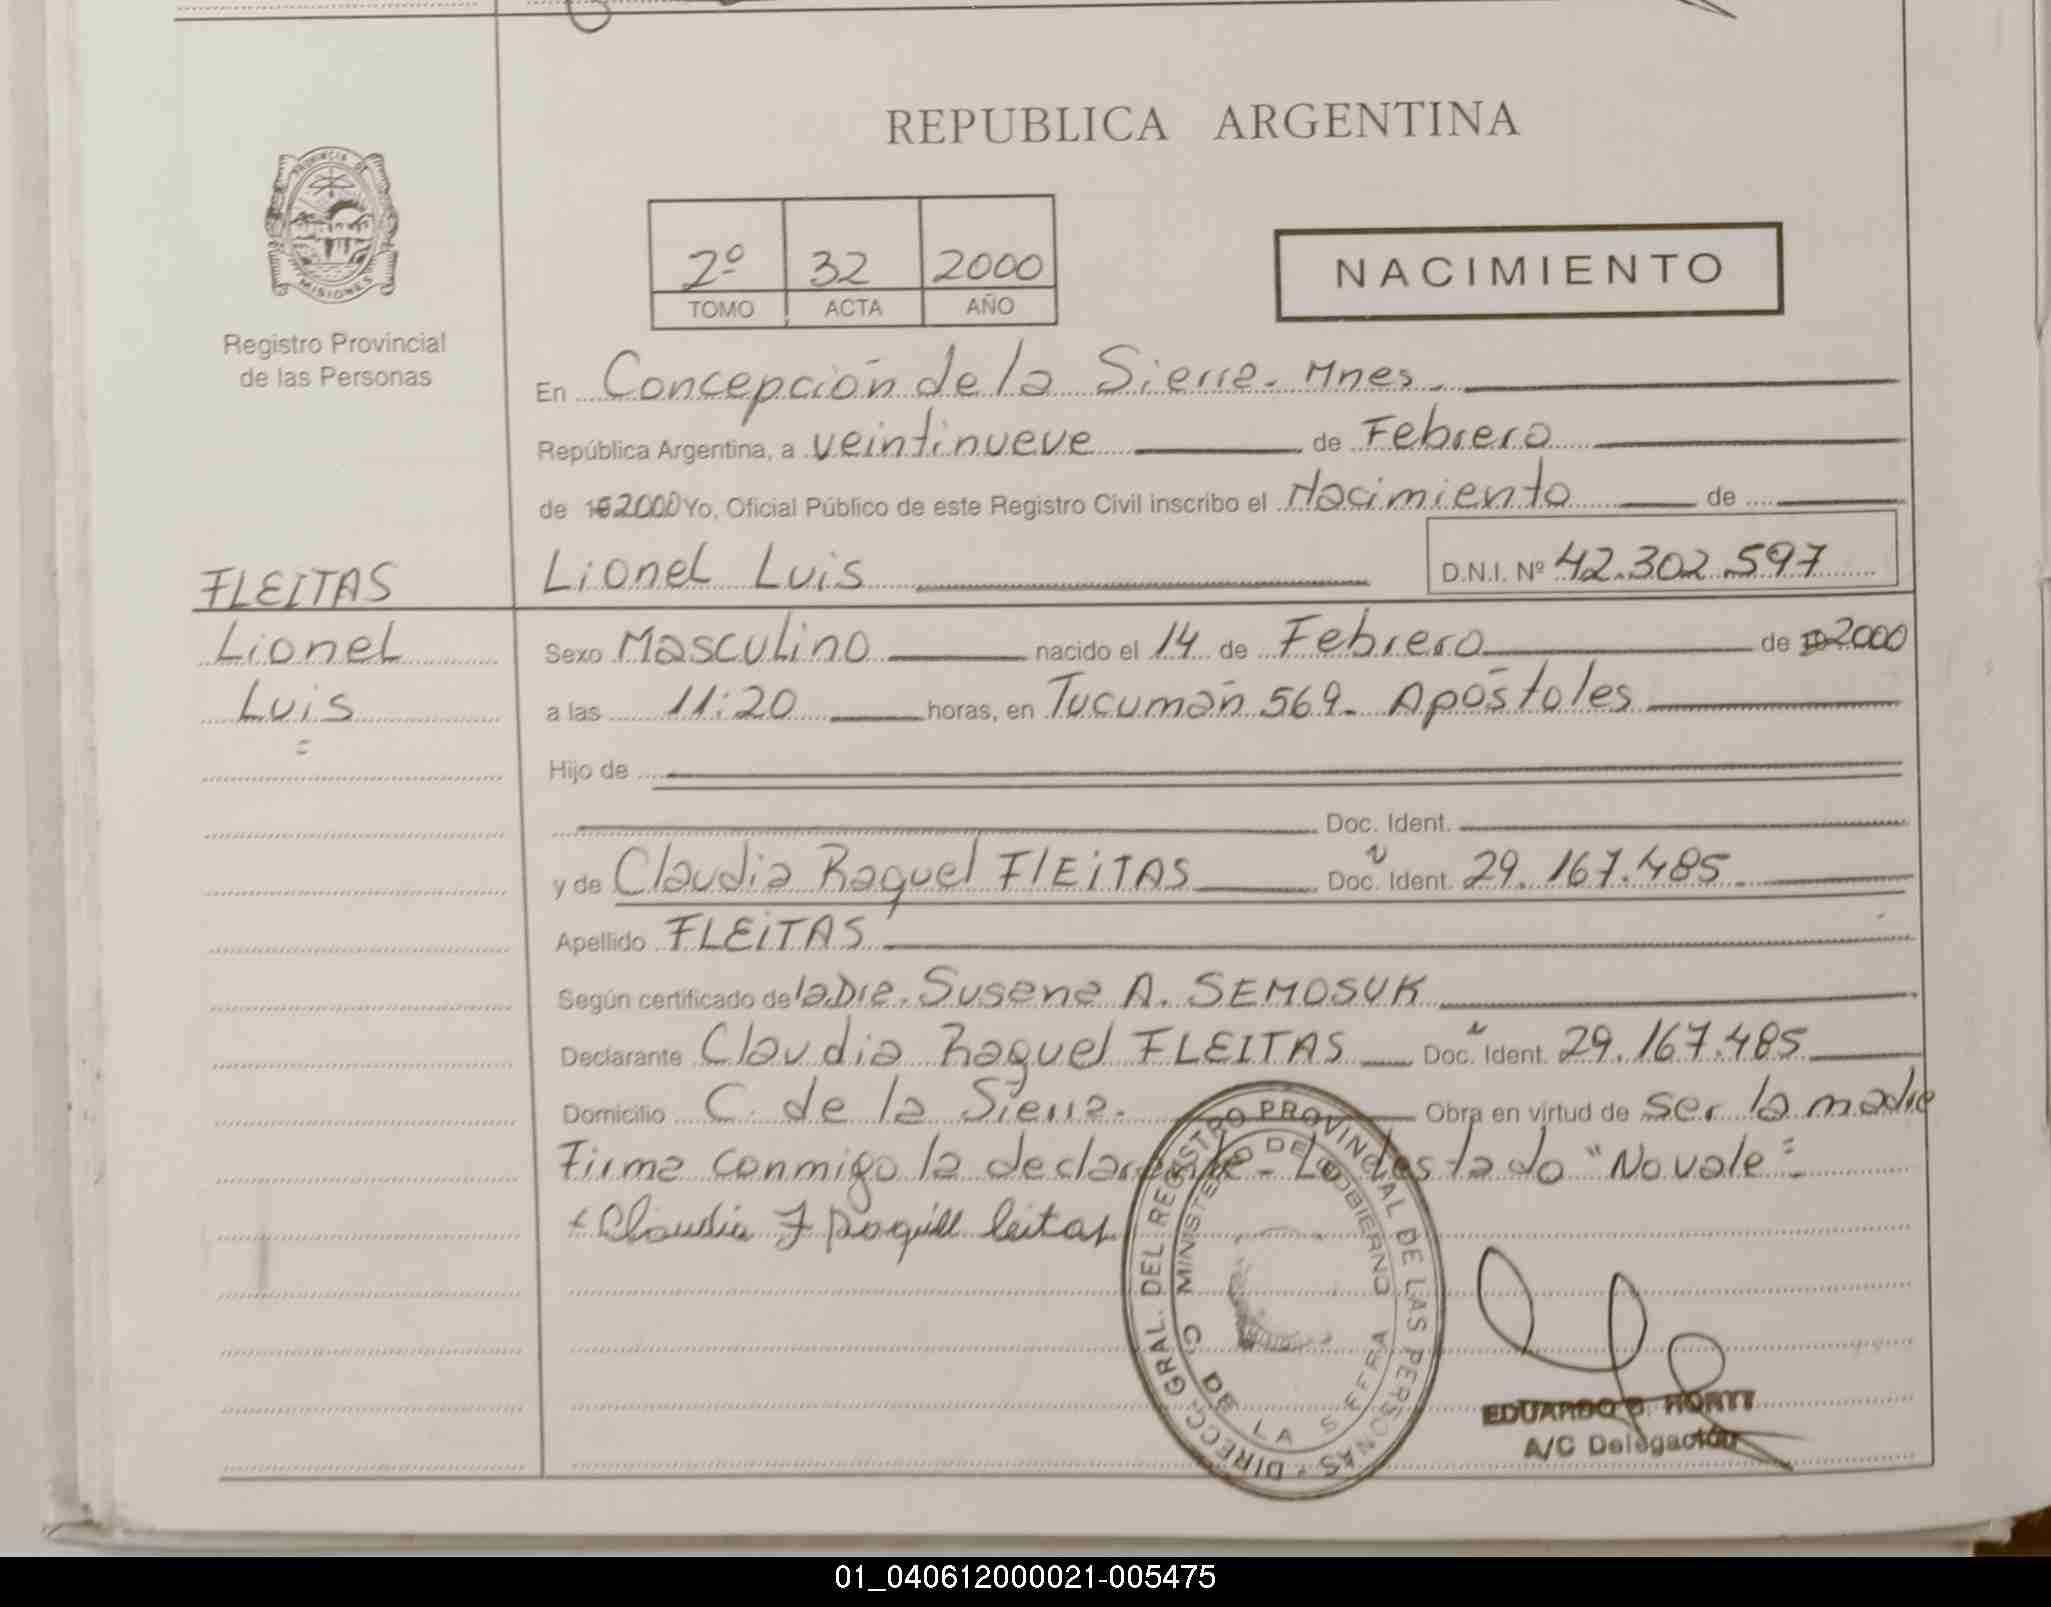 REPUBLICA ARGENTINA
PROVINCIA DE MISIONES
Registro Provincial
de las Personas
2º 32 2000
TOMO ACTA AÑO
NACIMIENTO
En Concepción de la Sierra - Mnes.
República Argentina, a veintinueve de Febrero
de 2000 Yo, Oficial Público de este Registro Civil inscribo el Nacimiento de
Lionel Luis D.N.I. Nº 42.302.597
FLEITAS
Lionel
Luis
=
Sexo Masculino nacido el 14 de Febrero de 2000
a las 11:20 horas, en Tucumán 569 - Apóstoles
Hijo de
Doc. Ident.
y de Claudia Raquel FlEiTAS Doc. Ident. 29.167.485
Apellido FLEiTAS
Según certificado de la Dra. Susana A. SEMOSUK
Declarante Claudia Raquel FLEITAS Doc. Ident. 29.167.485
Domicilio C. de la Sierra. Obra en virtud de ser la madre
Firma conmigo la declarante - Lo testado "No vale" -
Claudia F Raquel leitas
DIRECC. GRAL. DEL REGISTRO PROVINCIAL DE LAS PERSONAS
MINISTERIO DE GOBIERNO
LA SIERRA
EDUARDO
A/C Delegación
01_040612000021-005475